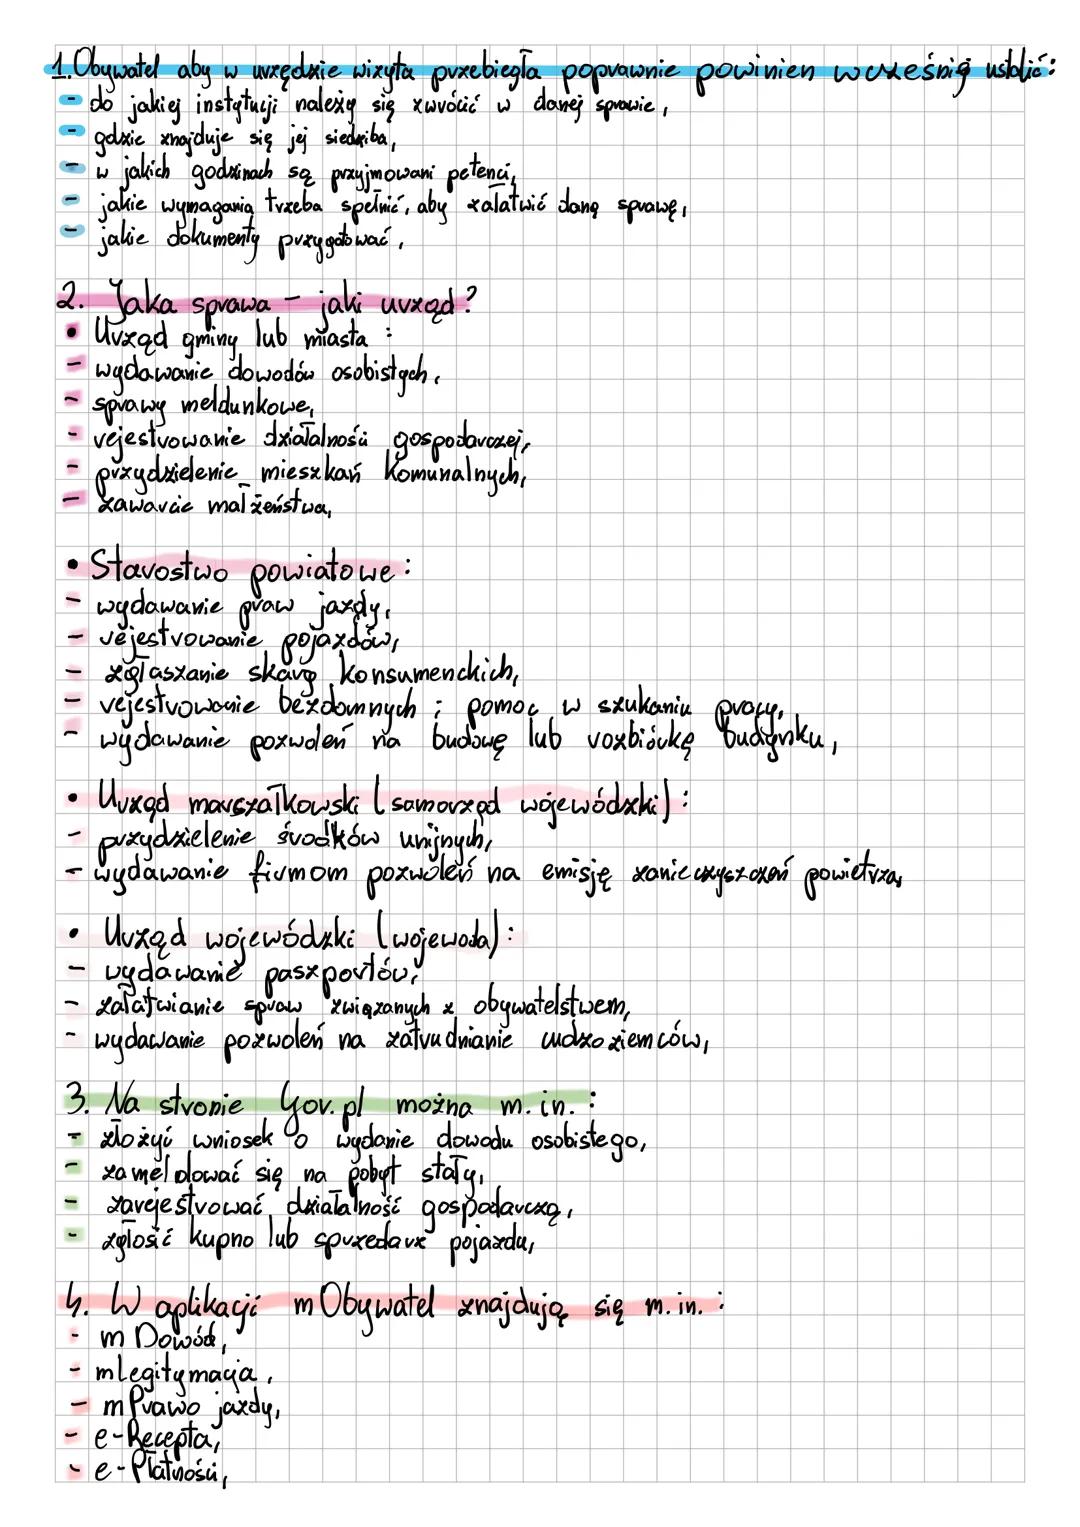 1. Obywatel aby w urzędzie wizyta przebiegła poprawnie powinien wcześniej ustalić:
- do jakiej instytucji należy się zwrócić w danej sprawie,
- gdzie znajduje się jej siedziba,
- w jakich godzinach są przyjmowani petenci,
- jakie wymagania trzeba spełnić, aby załatwić daną sprawę,
- jakie dokumenty przygotować,
2. Jaka sprawa - jaki urząd?
• Urząd gminy lub miasta :
- wydawanie dowodów osobistych,
- sprawy meldunkowe,
- rejestrowanie działalności gospodarczej,
- przydzielenie mieszkań komunalnych,
- zawarcie małżeństwa,
• Starostwo powiatowe:
- wydawanie praw jazdy,
- rejestrowanie pojazdów,
- zgłaszanie skarg konsumenckich,
- rejestrowanie bezdomnych i pomoc w szukaniu pracy,
- wydawanie pozwoleń na budowę lub rozbiórkę budynku,
• Urząd marszałkowski (samorząd wojewódzki):
- przydzielenie środków unijnych,
- wydawanie firmom pozwoleń na emisję zanieczyszczeń powietrza,
• Urząd wojewódzki (wojewoda):
- wydawanie paszportów,
- załatwianie spraw związanych z obywatelstwem,
- wydawanie pozwoleń na zatrudnianie cudzoziemców,
3. Na stronie Gov.pl można m.in.:
- złożyć wniosek o wydanie dowodu osobistego,
- zameldować się na pobyt stały,
- zarejestrować działalność gospodarczą,
- zgłosić kupno lub sprzedarz pojazdu,
4. W aplikacji mObywatel znajdują się m.in.:
- mDowód,
- mLegitymacja,
- mPrawo jazdy,
- e-Recepta,
- e-Płatności,